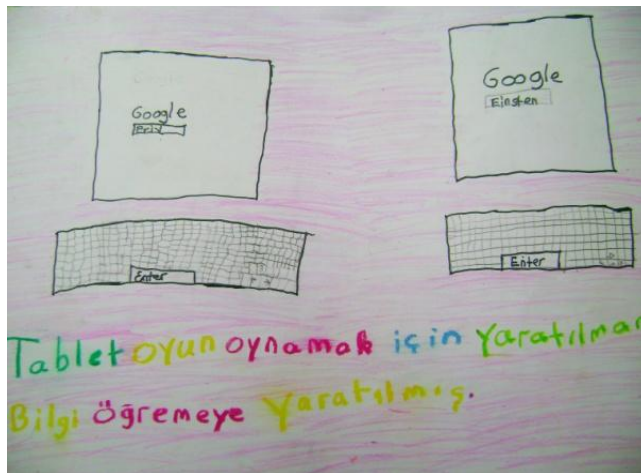 Google
Google
Einsten
Enter
Enter
Tablet oyun oynamak için yaratılmar
Bilgi öğremeye yaratılmış.